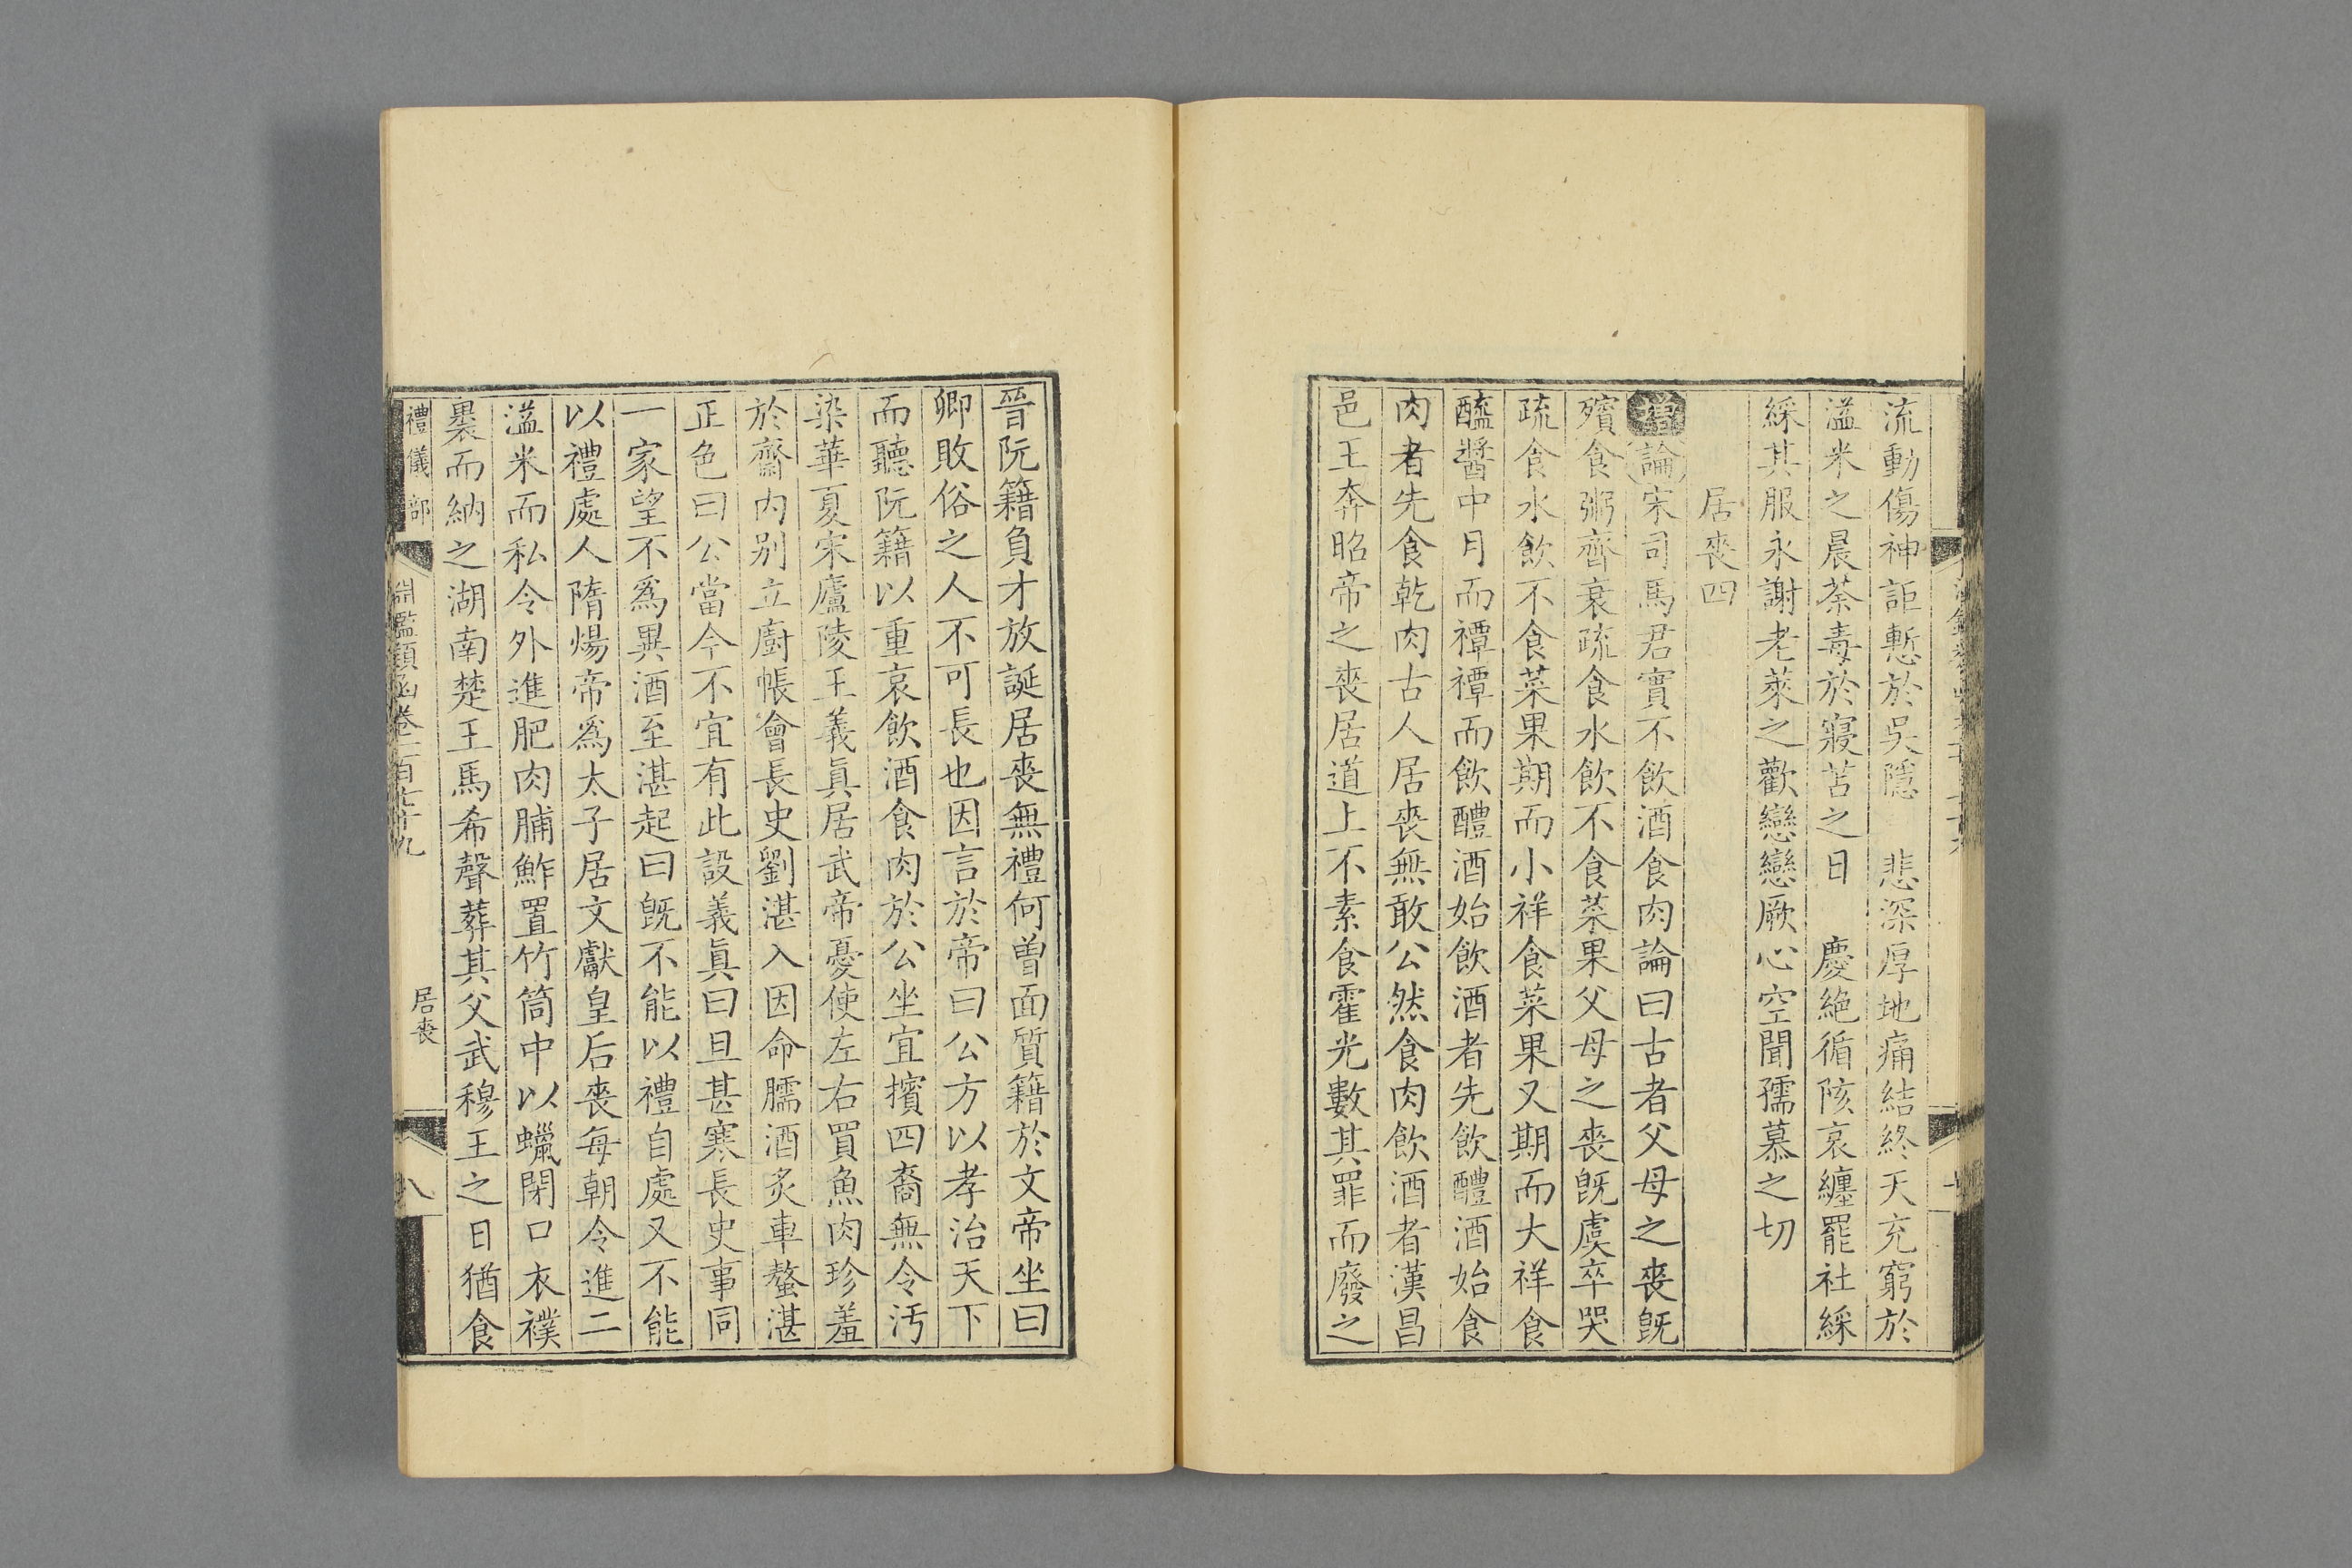 流動傷神詎慙於吳隱 悲深厚地痛結終天充窮於
溢米之晨荼毒於寢苫之日 慶絕循陔哀纏罷社綵
綵其服永謝老萊之歡戀戀厥心空聞孺慕之切
居喪四
增論宋司馬君實不飲酒食肉論曰古者父母之喪旣
殯食粥齊衰疏食水飲不食菜果父母之喪旣虞卒哭
疏食水飲不食菜果期而小祥食菜果又期而大祥食
醯醬中月而禫禫而飲醴酒始飲酒者先飲醴酒始食
肉者先食乾肉古人居喪無敢公然食肉飲酒者漢昌
邑王奔昭帝之喪居道上不素食霍光數其罪而廢之
晉阮籍負才放誕居喪無禮何曾面質籍於文帝坐曰
卿敗俗之人不可長也因言於帝曰公方以孝治天下
而聽阮籍以重哀飲酒食肉於公坐宜擯四裔無令汚
染華夏宋廬陵王義眞居武帝憂使左右買魚肉珍羞
於齋內別立廚帳會長史劉湛入因命臑酒炙車螯湛
正色曰公當今不宜有此設義眞曰旦甚寒長史事同
一家望不爲異酒至湛起曰旣不能以禮自處又不能
以禮處人隋煬帝爲太子居文獻皇后喪每朝令進二
溢米而私令外進肥肉脯鮓置竹筒中以蠟閉口衣襆
裹而納之湖南楚王馬希聲葬其父武穆王之日猶食
禮儀部 淵鑑類函卷一百七十九 居喪 八